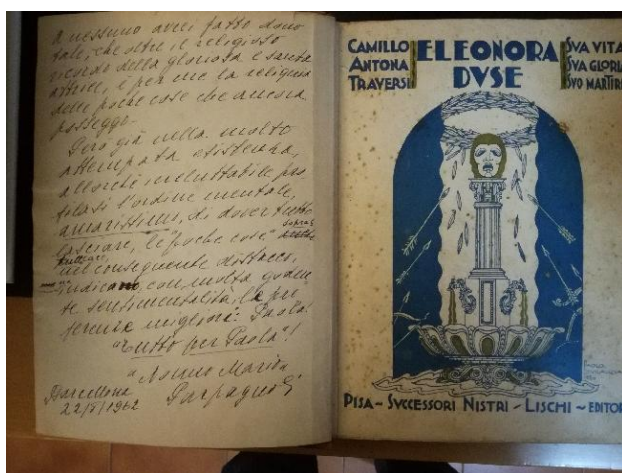 A nessuno avrei fatto dono
tale, che oltre il religioso
ricordo della gloriosa e santa
attrice, è per me la reliquia
delle poche cose che ancora
posseggo.
Però già nella molto
attempata esistenza,
allorché ineluttabile pro
filasi l'ordine mentale,
amarissimo, di dover tutto
lasciare, le "poche cose"
nel conseguente distacco,
indicano con molta
te sentimentalità, le pre
ferenze migliori: Paola!
"Tutto per Paola"!
"Nonno Mario"
Barcellona
22/8/1962
CAMILLO
ANTONA
TRAVERSI
ELEONORA
DVSE
SVA VITA
SVA GLORIA
SVO MARTIRI
PISA ~ SVCCESSORI NISTRI ~ LISCHI ~ EDITO